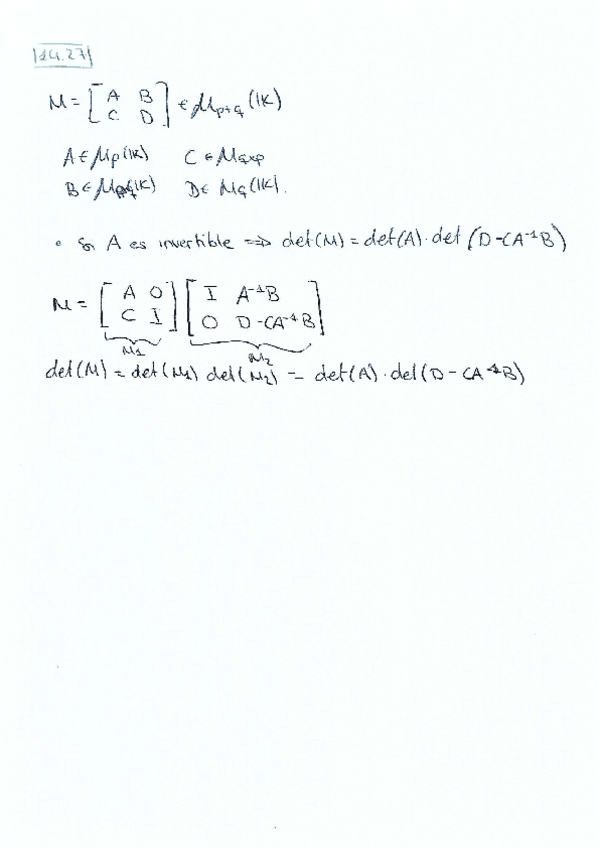 124.27
M = [ A B ; C D ] ∈ M_{p+q}(K)
A ∈ M_p(K)    C ∈ M_{q×p}
B ∈ (K)    D ∈ M_q(K).
• Si A es invertible => det(M) = det(A)·det(D-CA^{-1}B)
M = [ A O ; C I ] [ I A^{-1}B ; O D-CA^{-1}B ]
M_1 M_2
det(M) = det(M_1) det(M_2) = det(A)·det(D-CA^{-1}B)